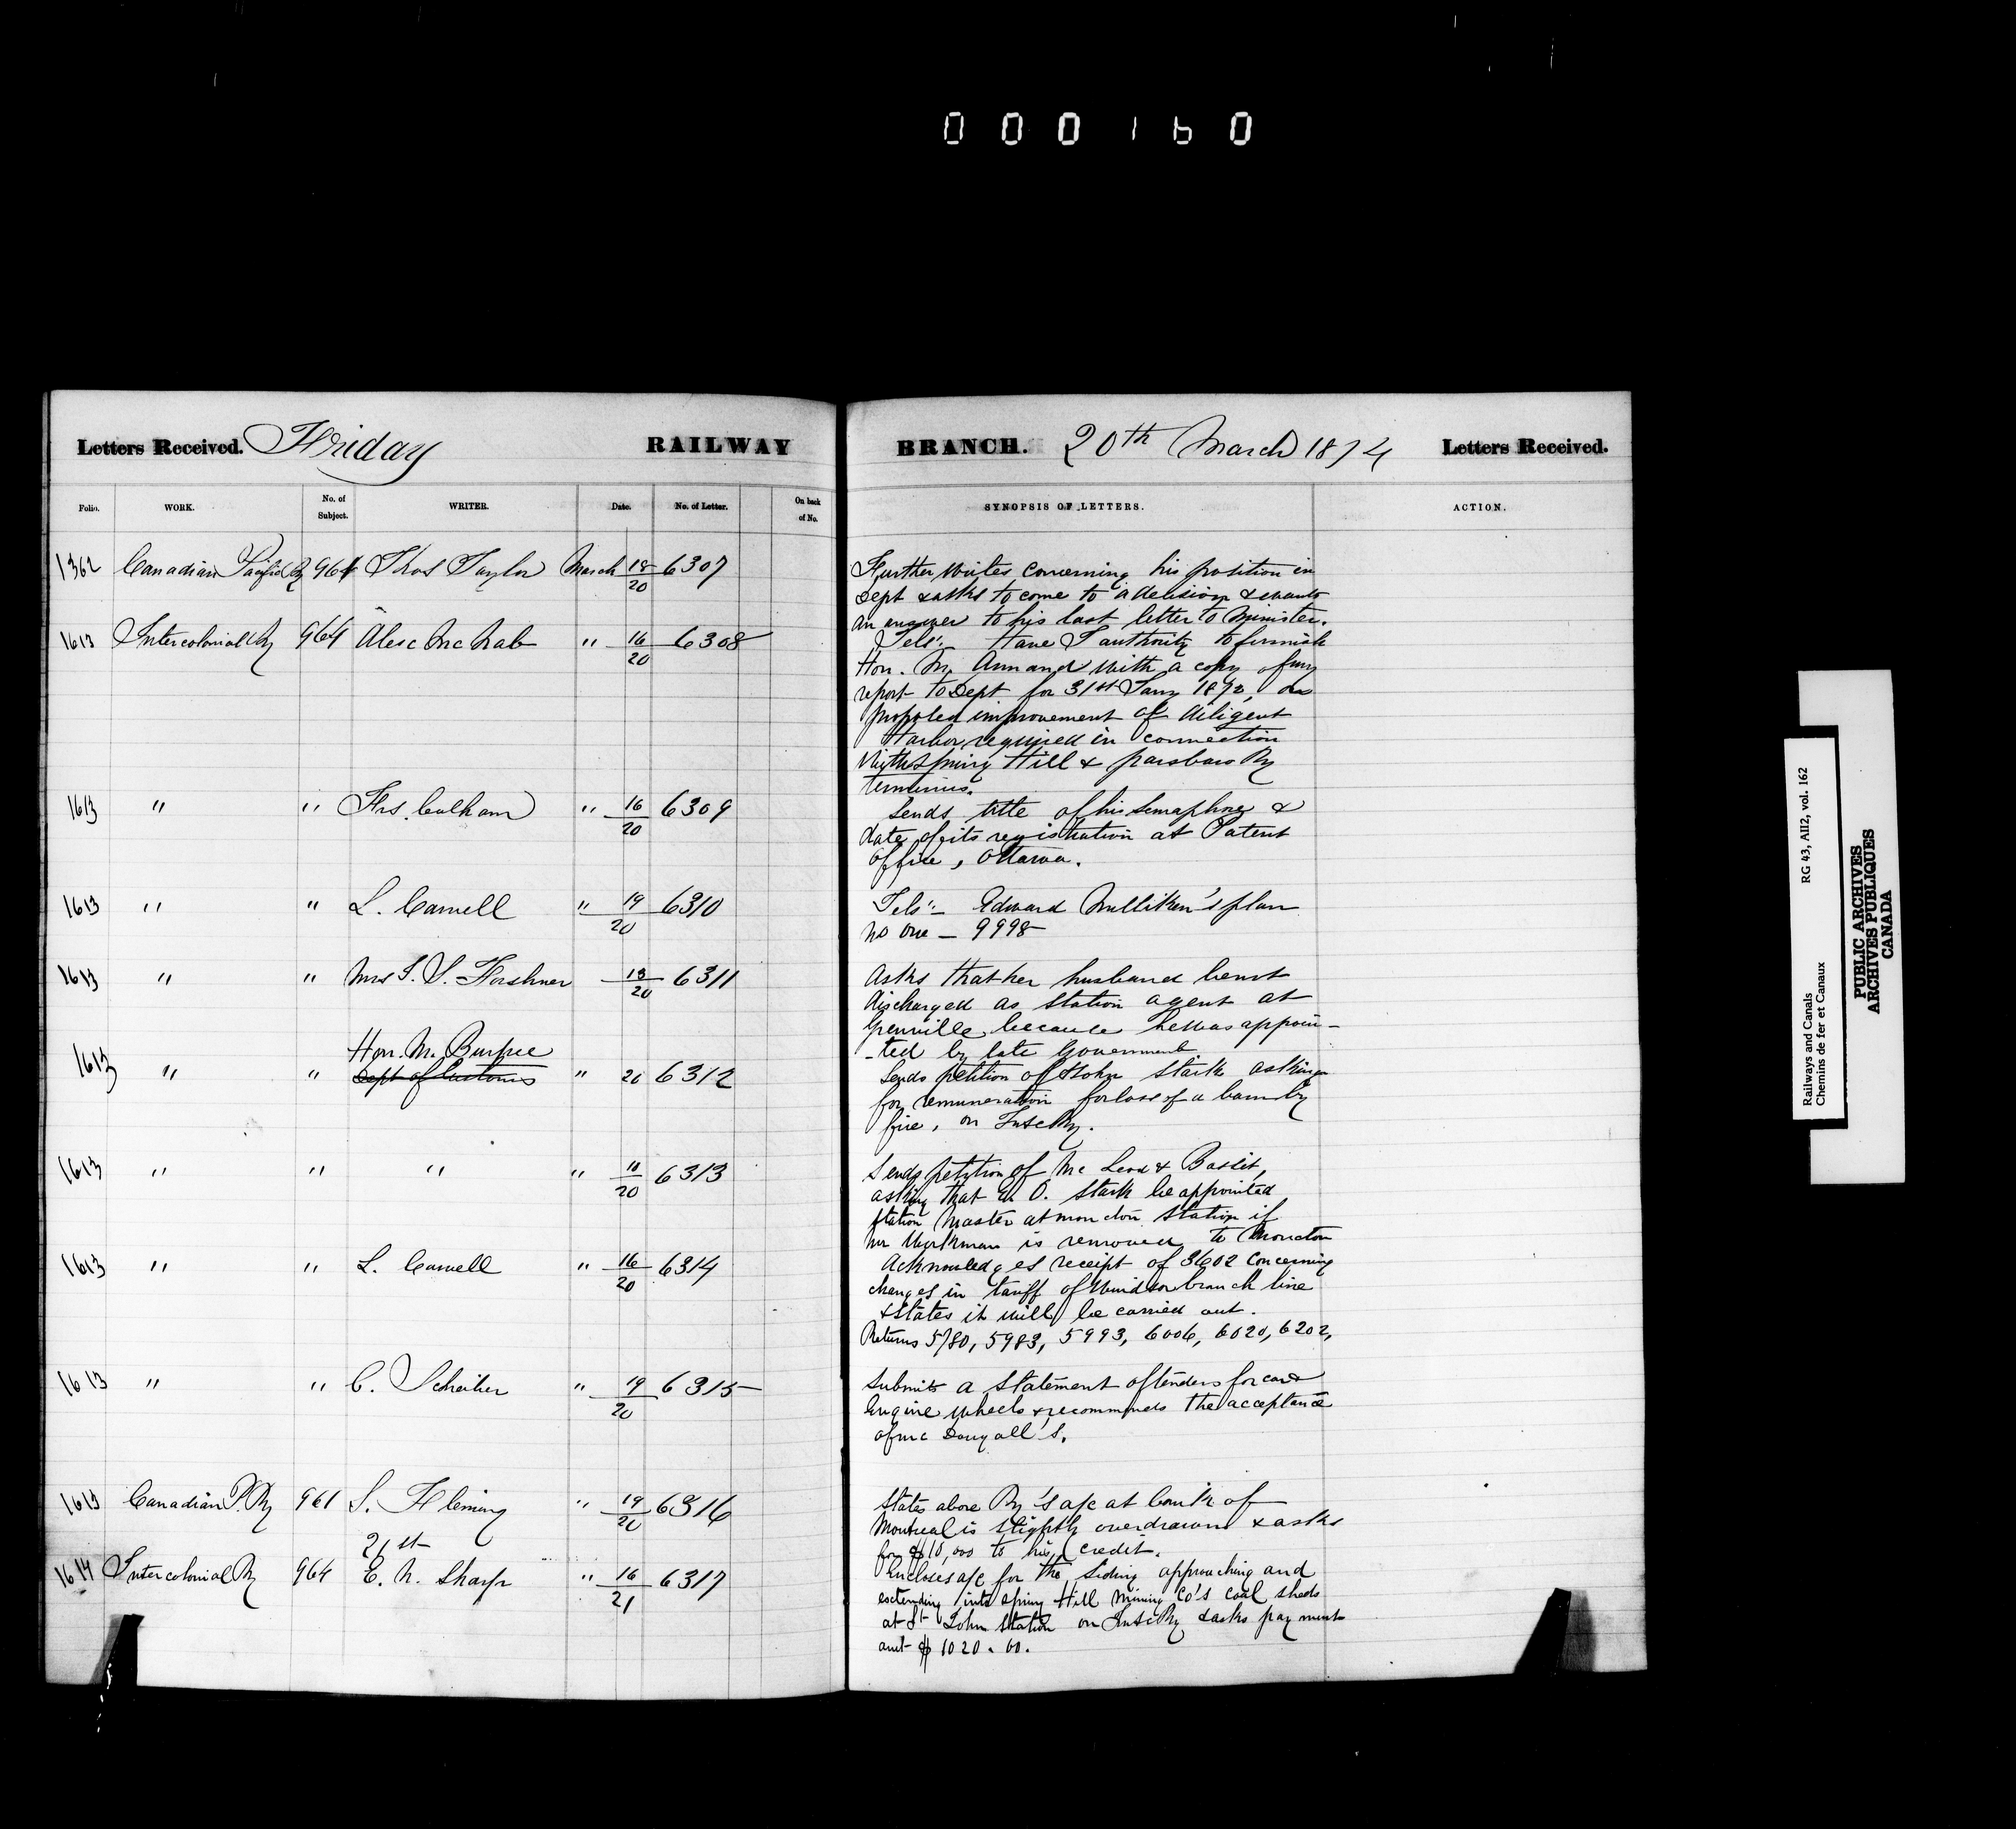 000160
Letters Received. Friday RAILWAY BRANCH. 20th March 1874 Letters Received.
Folio. WORK. No. of Subject. WRITER. Date. No. of Letter. On back of No. SYNOPSIS OF LETTERS. ACTION.
1362 Canadian Pacific Ry 964 Thos Taylor March 18/20 6307 Further writes concerning his position in
Dept & asks to come to a decision & wants
an answer to his last letter to Minister.
1613 Intercolonial Ry 964 Alex McNab " 16/20 6308 Tels:- Have I authority to furnish
Hon. M. Annand with a copy of my
report to Dept for 31st Jany 1873, on
proposed improvement of diligent
Harbor required in connection
with Spring Hill & parsboro Ry
terminus.
1613 " " Frs. Culham " 16/20 6309 Sends title of his Semaphore &
date of its registration at Patent
Office, Ottawa.
1613 " " L. Carvell " 19/20 6310 Tels:- Edward Milliken's plan
no one - 9998
1613 " " Mrs T. S. Forshner 13/20 6311 Asks that her husband be not
discharged as station agent at
Grenville because he was appoin-
-ted by late Government
1613 " " Hon. M. Burpee " 20 6312 Sends petition of John Stark asking
Dept of Customs
for remuneration for loss of a barn by
fire, on Intec Ry.
1613 " " " " 18/20 6313 Sends petition of McLeod &
asking that O. Stark be appointed
station Master at moncton station if
Mr Workman is removed to Moncton
1613 " " L. Carvell " 16/20 6314 Acknowledges receipt of 3602 concerning
changes in tariff of Windsor branch line
& states it will be carried out.
Returns 5780, 5983, 5993, 6006, 6020, 6202,
1613 " " C. Schreiber " 19/20 6315 Submits a statement of tenders for car &
Engine wheels & recommends the acceptance
of McDougall's.
1613 Canadian P. Ry 961 S. Fleming " 19/20 6316 States above Ry's a/c at bank of
Montreal is slightly overdrawn & asks
for $10,000 to his credit.
21st
1614 Intercolonial Ry 964 E. N. Sharp " 16/21 6317 Encloses a/c for the Siding approaching and
extending into Spring Hill Mining Co's coal sheds
at St John Station on Intc Ry & asks payment
amt $1020.00.
Railways and Canals RG 43, AII2, vol. 162
Chemins de fer et Canaux
PUBLIC ARCHIVES
ARCHIVES PUBLIQUES
CANADA